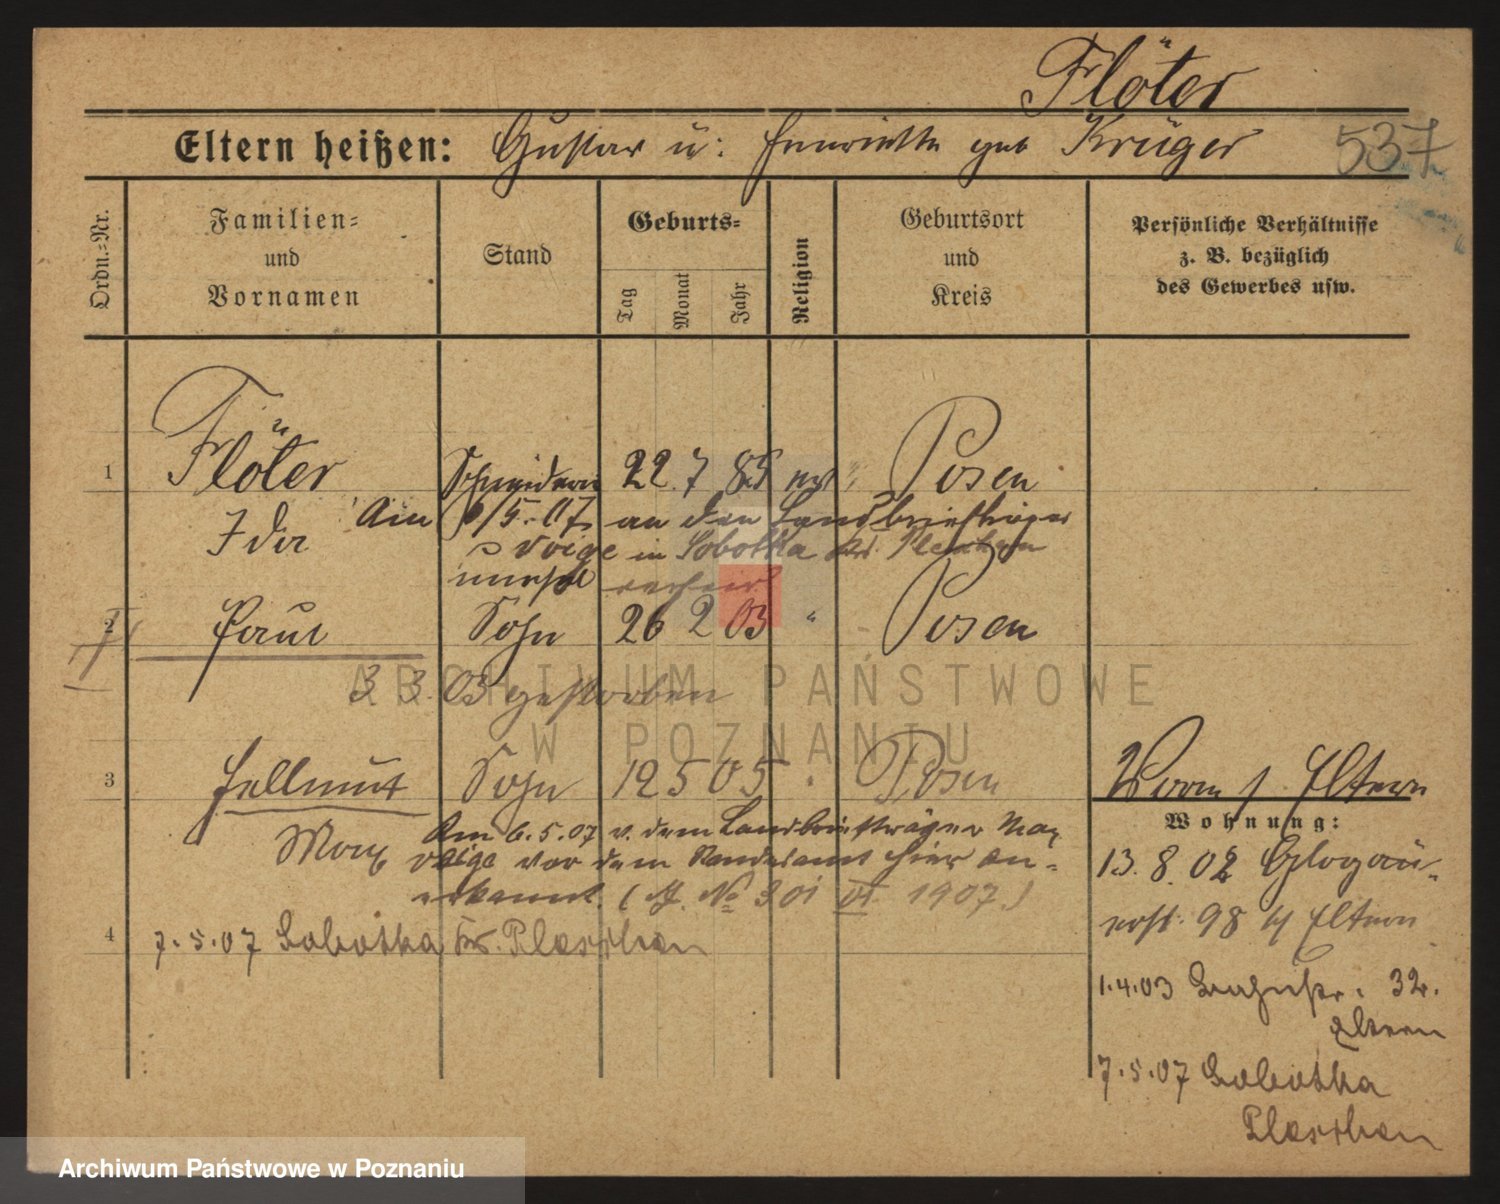 Flöter
Eltern heißen: Gustav u: Henriette geb Krüger 537
Ordn.=Nr.
Familien=
und
Vornamen
Stand
Geburts=
Tag
Monat
Jahr
Religion
Geburtsort
und
Kreis
Persönliche Verhältnisse
z. B. bezüglich
des Gewerbes usw.
1 Flöter Schneiderin 22 7 85 Posen
Ida Am 6/5.07 an den Landbriefträger
Voige in Sobotka Kr. Pleschen
2 Paul Sohn 26 2 03 " Posen
3 3. 03 gestorben
3 Hellmut Sohn 12 5 05 " Posen
Max Am 6.5.07 v. dem Landbriefträger Max
Voige vor dem Standesamt hier an=
erkannt. (J. No 301 VI 1907.)
4 7.5.07 Sobotka Kr. Pleschen
Worm / Eltern
Wohnung:
13.8.02 Glogau=
98 Eltern
1.4.03 32.
Eltern
7.5.07 Sobotka
Pleschen
ARCHIWUM PAŃSTWOWE
W POZNANIU
Archiwum Państwowe w Poznaniu